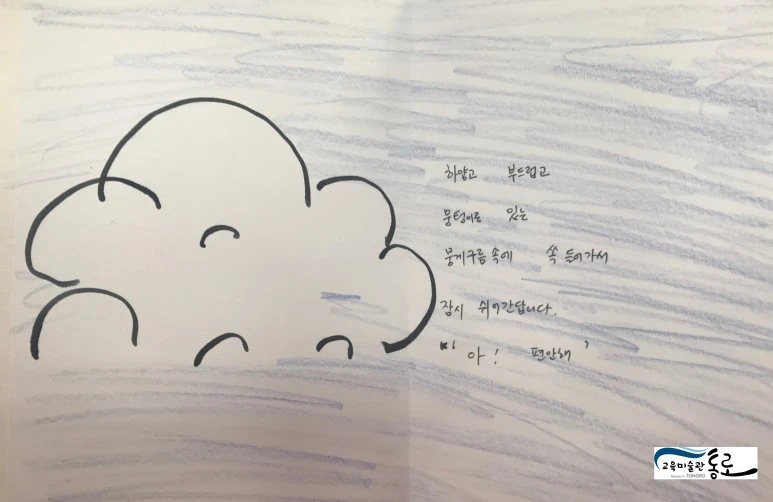 하얗고 부드럽고
뭉텅이로 있는
뭉게구름속에 쏙 들어가서
잠시 쉬어간답니다.
"' 아! 편안해 '
교육미술관 통로
TONGRO